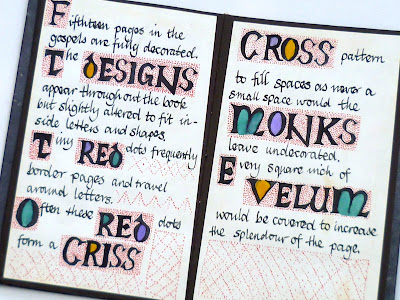 Fifthteen pages in the
gospels are fully decorated.
The DESIGNS
appear throughout the book
but slightly altered to fit in-
side letters and shapes.
Tiny RED dots frequently
border pages and travel
around letters.
Often these RED dots
form a CRISS
CROSS pattern
to fill spaces as never a
small space would the
MONKS
leave undecorated.
Every square inch of
VELUM
would be covered to increase
the splendour of the page.